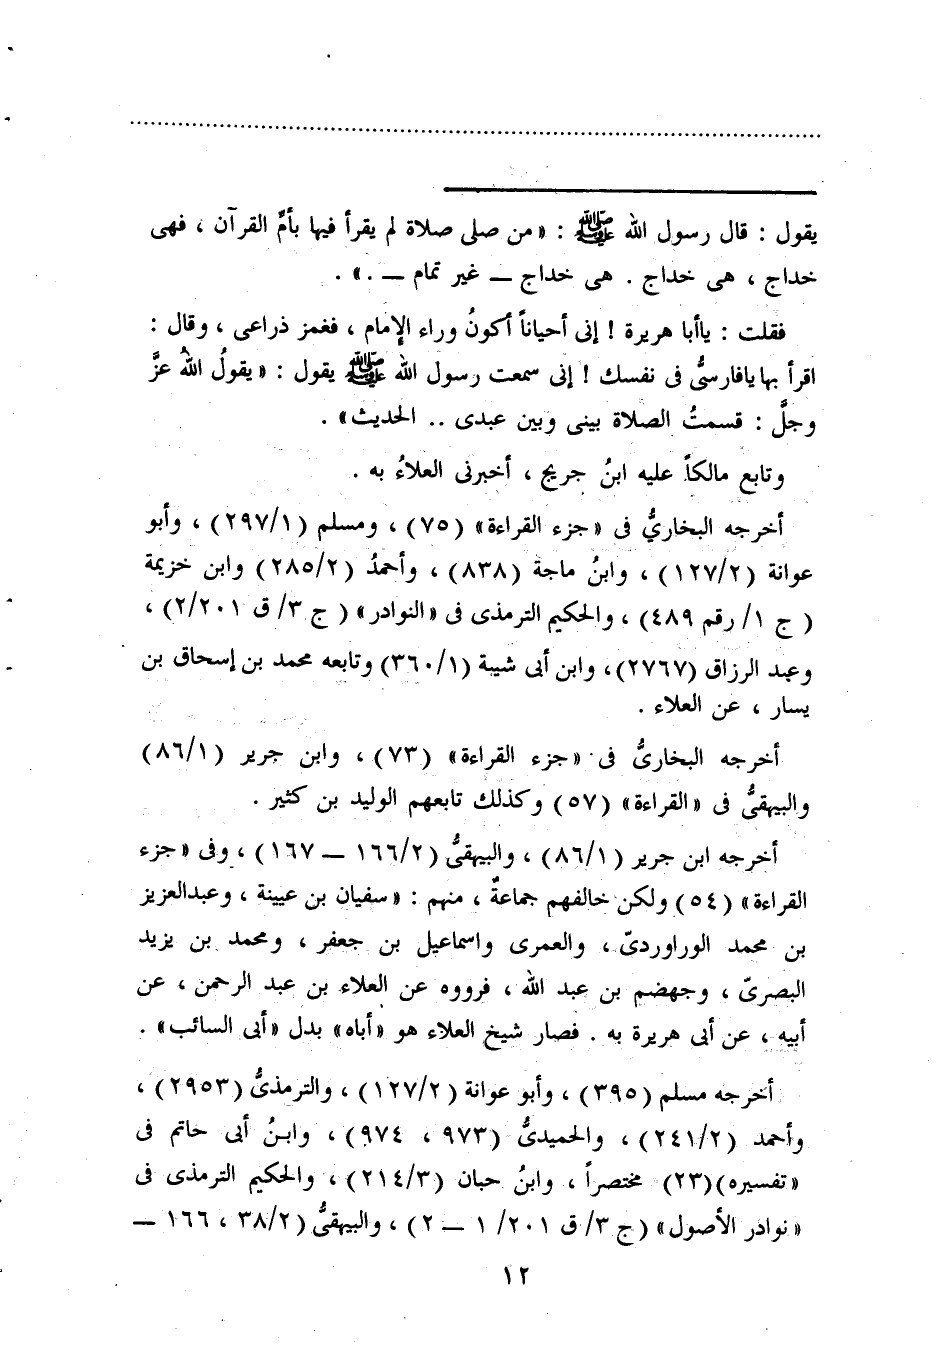 يقول : قال رسول الله ﷺ : «من صلى صلاة لم يقرأ فيها بأمِّ القرآن ، فهى
خداج ، هى خداج . هى خداج ــ غير تمام ــ .» .
فقلت : ياأبا هريرة ! إنى أحياناً أكونُ وراء الإمام ، فغمز ذراعى ، وقال :
اقرأ بها يافارسىُّ فى نفسك ! إنى سمعت رسول الله ﷺ يقول : «يقولُ اللهُ عزَّ
وجلَّ : قسمتُ الصلاة بينى وبين عبدى .. الحديث» .
وتابع مالكاً عليه ابنُ جريج ، أخبرنى العلاءُ به .
أخرجه البخاريُّ فى «جزء القراءة» (٧٥) ، ومسلم (٢٩٧/١) ، وأبو
عوانة (١٢٧/٢) ، وابنُ ماجة (٨٣٨) ، وأحمدُ (٢٨٥/٢) وابن خزيمة
( ج ١/ رقم ٤٨٩) ، والحكيم الترمذى فى «النوادر» ( ج ٣/ ق ٢/٢٠١) ،
وعبد الرزاق (٢٧٦٧)، وابن أبى شيبة (٣٦٠/١) وتابعه محمد بن إسحاق بن
يسار ، عن العلاء .
أخرجه البخارىُّ فى «جزء القراءة» (٧٣) ، وابن جرير (٨٦/١)
والبيهقىُّ فى «القراءة» (٥٧) وكذلك تابعهم الوليد بن كثير .
أخرجه ابن جرير (٨٦/١) ، والبيهقىُّ (١٦٦/٢ ــ ١٦٧) ، وفى «جزء
القراءة» (٥٤) ولكن خالفهم جماعةٌ ، منهم : «سفيان بن عيينة ، وعبدالعزيز
بن محمد الوراوردىّ ، والعمرى واسماعيل بن جعفر ، ومحمد بن يزيد
البصرىّ ، وجهضم بن عبد الله ، فرووه عن العلاء بن عبد الرحمن ، عن
أبيه ، عن أبى هريرة به . فصار شيخ العلاء هو «أباه» بدل «أبى السائب» .
أخرجه مسلم (٣٩٥) ، وأبو عوانة (١٢٧/٢) ، والترمذىُّ (٢٩٥٣) ،
وأحمد (٢٤١/٢) ، والحميدىُّ (٩٧٣ ، ٩٧٤) ، وابنُ أبى حاتم فى
«تفسيره)(٢٣) مختصراً ، وابنُ حبان (٢١٤/٣) ، والحكيم الترمذى فى
«نوادر الأصول» (ج ٣/ ق ٢٠١/ ١ ــ ٢) ، والبيهقىُّ (٣٨/٢ ، ١٦٦ ــ
١٢